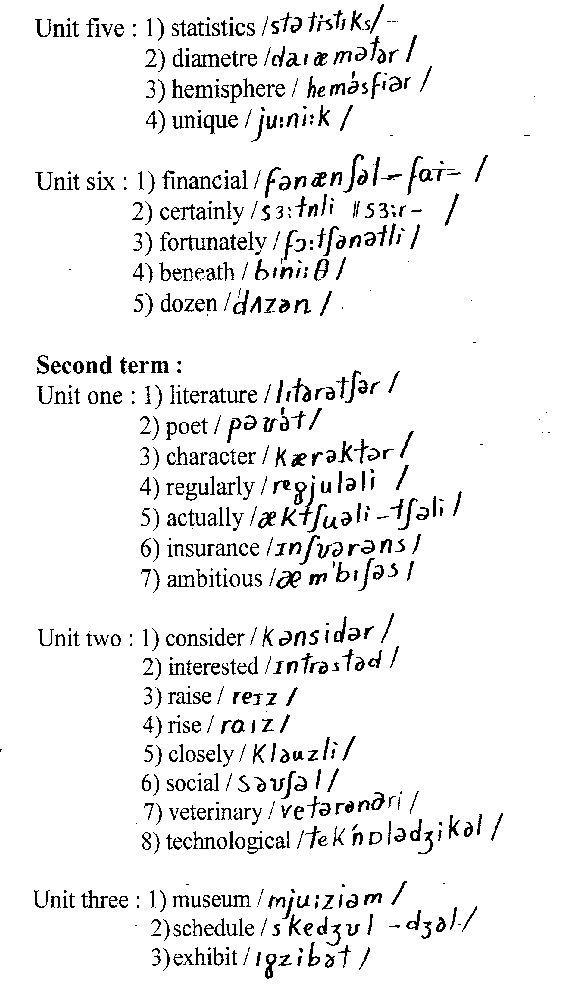 Unit five : 1) statistics /stətistɪks/ –
2) diametre /daɪæmətər /
3) hemisphere / heməsfiər /
4) unique / juːniːk /
Unit six : 1) financial / fənænʃəl – faɪ– /
2) certainly /sɜːtnli ǁ sɜːr – /
3) fortunately / fɔːtʃənətli /
4) beneath / bɪniːθ /
5) dozen / dʌzən /
Second term :
Unit one : 1) literature / lɪtərətʃər /
2) poet / pəʊət /
3) character / kærəktər /
4) regularly / regjuləli /
5) actually /æktʃuəli – tʃəli /
6) insurance /ɪnʃʊərəns /
7) ambitious /æm'bɪʃəs /
Unit two : 1) consider / kənsidər /
2) interested /ɪntrəstəd /
3) raise / reɪz /
4) rise / raɪz /
5) closely / kləuzli /
6) social / səʊʃəl /
7) veterinary / vetərənəri /
8) technological / teknɒlədʒikəl /
Unit three : 1) museum / mjuːziəm /
2) schedule / skedʒʊl – dʒəl /
3) exhibit / ɪgzibət /